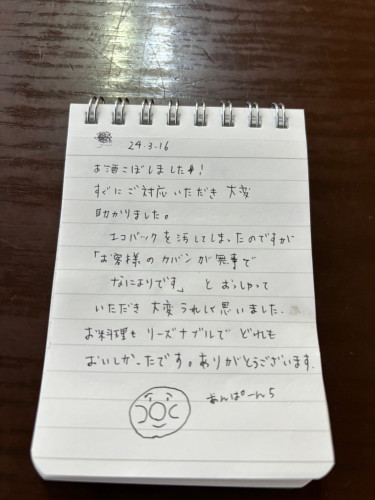 24.3.16
お酒こぼしました!
すぐにご対応いただき 大変
助かりました。
エコバックを汚してしまったのですが
「お客様のカバンが無事で
なによりです」 と おっしゃって
いただき 大変うれしく思いました.
お料理も リーズナブルで どれも
おいしかったです。ありがとうございます.
あんぱーんち